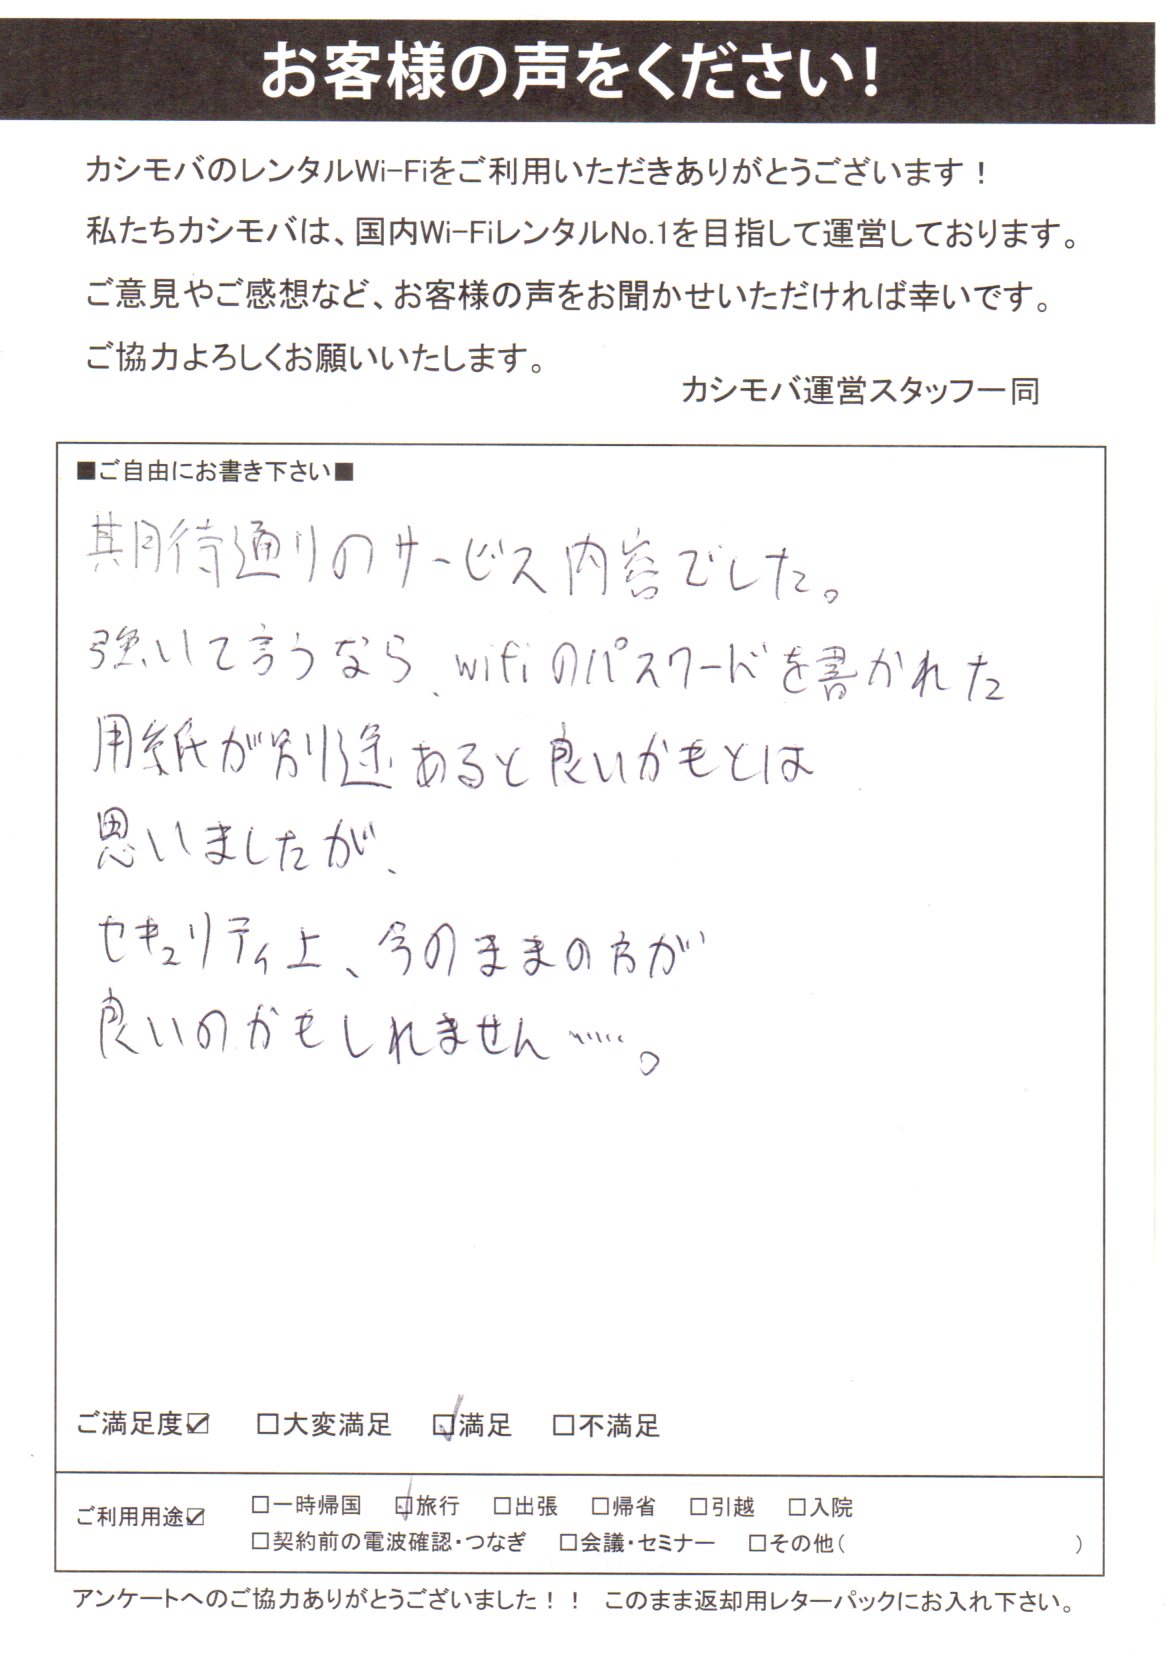 お客様の声をください！
カシモバのレンタルWi-Fiをご利用いただきありがとうございます！
私たちカシモバは、国内Wi-FiレンタルNo.1を目指して運営しております。
ご意見やご感想など、お客様の声をお聞かせいただければ幸いです。
ご協力よろしくお願いいたします。
カシモバ運営スタッフ一同
■ご自由にお書き下さい■
期待通りのサービス内容でした。
強いて言うなら、wifiのパスワードを書かれた
用紙が別途あると良いかもとは
思いましたが、
セキュリティ上、今のままの方が
良いのかもしれません……。
ご満足度☑ □大変満足 ☑満足 □不満足
ご利用用途☑ □一時帰国 ☑旅行 □出張 □帰省 □引越 □入院
□契約前の電波確認・つなぎ □会議・セミナー □その他（ ）
アンケートへのご協力ありがとうございました！！ このまま返却用レターパックにお入れ下さい。